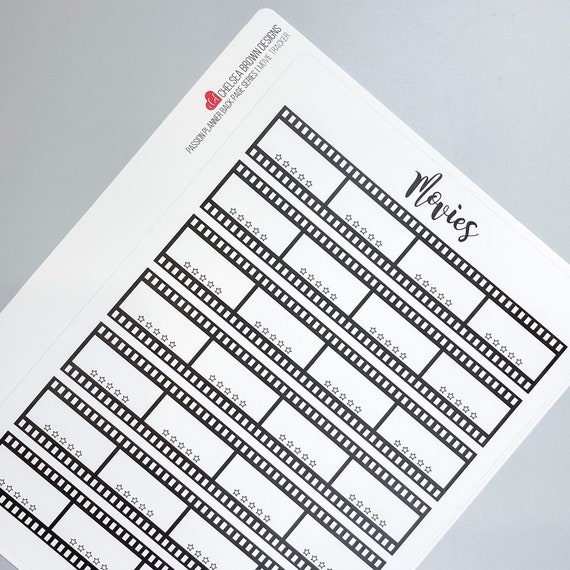 cbd CHELSEA BROWN DESIGNS
PASSION PLANNER BACK PAGE SERIES | MOVIE TRACKER
Movies